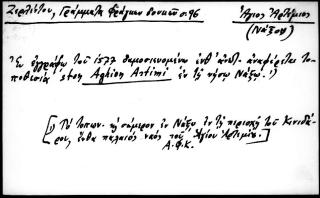 Ζερλέντου, Γράμματα Φράγκων δουκῶν σ. 96
Ἅγιος Ἀρτέμιος
(Νάξου)
Ἐν ἐγγράφῳ τοῦ 1577 δημοσιευομένῳ ἀναφέρεται το-
ποθεσία sten Aghion Artimi ἐν τῇ νήσῳ Νάξῳ. ¹)
[¹) Τὸ τοπων. καὶ σήμερον ἐν Νάξῳ ἐν τῇ περιοχῇ τοῦ Κινιδά-
ρου, ἔνθα παλαιὸς ναὸς τοῦ Ἁγίου Ἀρτεμίου.]
Α.Φ.Κ.